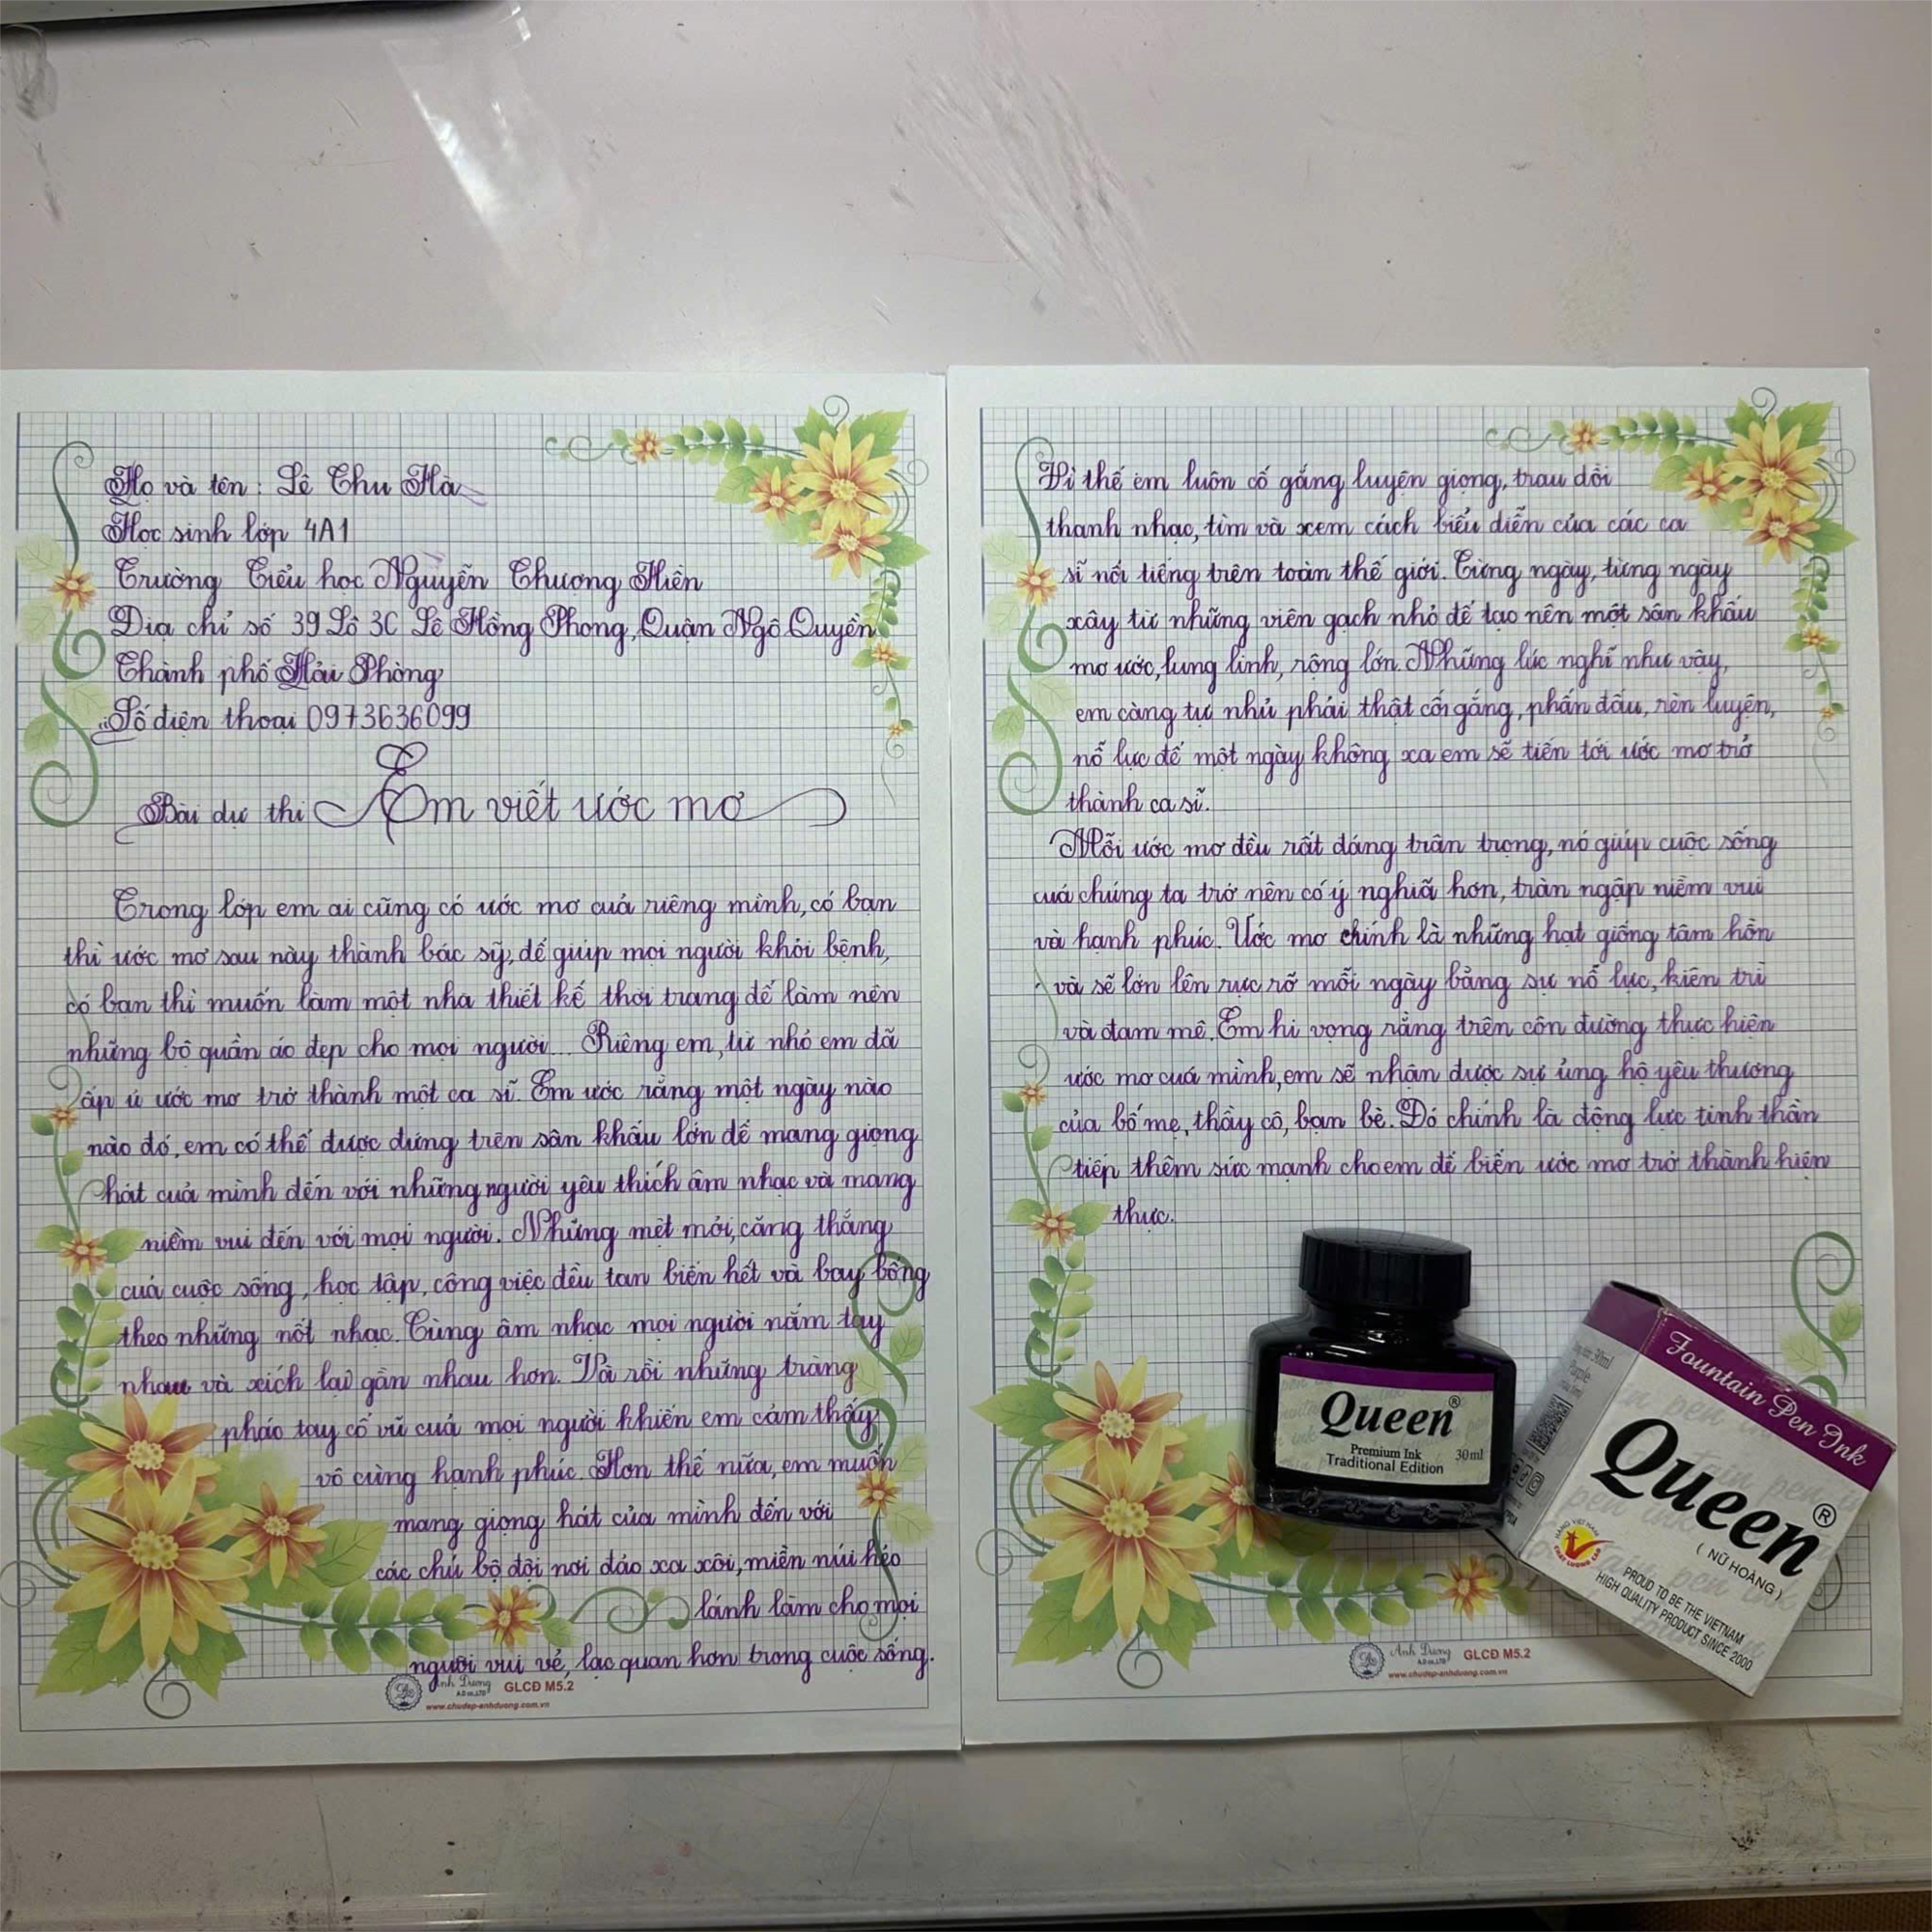 Họ và tên: Lê Thu Hà
Học sinh lớp 4A1
Trường Tiểu học Nguyễn Thượng Hiền
Địa chỉ số 39 Lô 3C Lê Hồng Phong, Quận Ngô Quyền
Thành phố Hải Phòng
Số điện thoại 0973636099
Bài dự thi Em viết ước mơ
Trong lớp em ai cũng có ước mơ của riêng mình, có bạn
thì ước mơ sau này thành bác sỹ, để giúp mọi người khỏi bệnh,
có bạn thì muốn làm một nhà thiết kế thời trang để làm nên
những bộ quần áo đẹp cho mọi người... Riêng em, từ nhỏ em đã
ấp ủ ước mơ trở thành một ca sĩ. Em ước rằng một ngày nào
nào đó, em có thể được đứng trên sân khấu lớn để mang giọng
hát của mình đến với những người yêu thích âm nhạc và mang
niềm vui đến với mọi người. Những mệt mỏi, căng thẳng
của cuộc sống, học tập, công việc đều tan biến hết và bay bổng
theo những nốt nhạc. Cùng âm nhạc mọi người nắm tay
nhau và xích lại gần nhau hơn. Và rồi những tràng
pháo tay cổ vũ của mọi người khiến em cảm thấy
vô cùng hạnh phúc. Hơn thế nữa, em muốn
mang giọng hát của mình đến với
các chú bộ đội nơi đảo xa xôi, miền núi hẻo
lánh làm cho mọi
người vui vẻ, lạc quan hơn trong cuộc sống.
Anh Dương
A.D co.,LTD
GLCĐ M5.2
www.chudep-anhduong.com.vn
Vì thế em luôn cố gắng luyện giọng, trau dồi
thanh nhạc, tìm và xem cách biểu diễn của các ca
sĩ nổi tiếng trên toàn thế giới. Từng ngày, từng ngày
xây từ những viên gạch nhỏ để tạo nên một sân khấu
mơ ước, lung linh, rộng lớn. Những lúc nghĩ như vậy,
em càng tự nhủ phải thật cối gắng, phấn đấu, rèn luyện,
nỗ lực để một ngày không xa em sẽ tiến tới ước mơ trở
thành ca sĩ.
Mỗi ước mơ đều rất đáng trân trọng, nó giúp cuộc sống
của chúng ta trở nên có ý nghĩa hơn, tràn ngập niềm vui
và hạnh phúc. Ước mơ chính là những hạt giống tâm hồn
và sẽ lớn lên rực rỡ mỗi ngày bằng sự nỗ lực, kiên trì
và đam mê. Em hi vọng rằng trên côn đường thực hiện
ước mơ của mình, em sẽ nhận được sự ủng hộ yêu thương
của bố mẹ, thầy cô, bạn bè. Đó chính là động lực tinh thần
tiếp thêm sức mạnh cho em để biến ước mơ trở thành hiện
thực.
Queen®
Premium Ink
Traditional Edition
30ml
Fountain Pen Ink
Queen®
( NỮ HOÀNG )
HÀNG VIỆT NAM
CHẤT LƯỢNG CAO
PROUD TO BE THE VIETNAM
HIGH QUALITY PRODUCT SINCE 2000
30ml
Purple
Anh Dương
A.D co.,LTD
GLCĐ M5.2
www.chudep-anhduong.com.vn